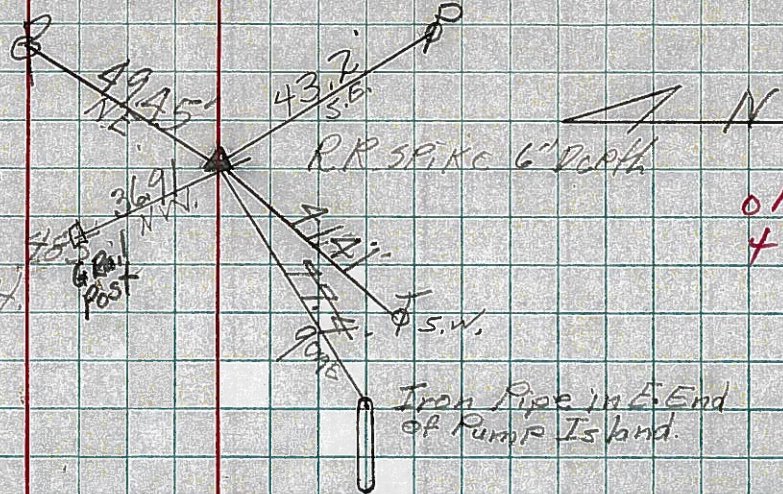 P
49.45'
N.E.
43.2'
S.E.
N
R.R. SPiKe 6" DePth
36.91
N.W.
G Rail
Post
T
S.W.
GONE
Iron Pipe in E. End
of Pump Island.